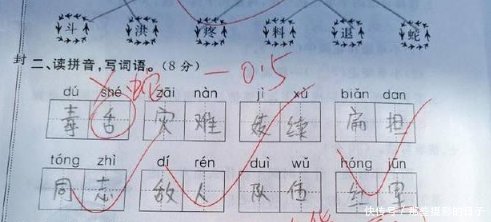 斗 洪 疼 料 退 蛇
封 二、读拼音,写词语。(8分) -0.5
dú shé zāi nàn jì xù biǎn dan
毒舌 蛇 灾难 继续 扁担
tóng zhì dí rén duì wǔ hóng jūn
同志 敌人 队伍 红军
快传号/